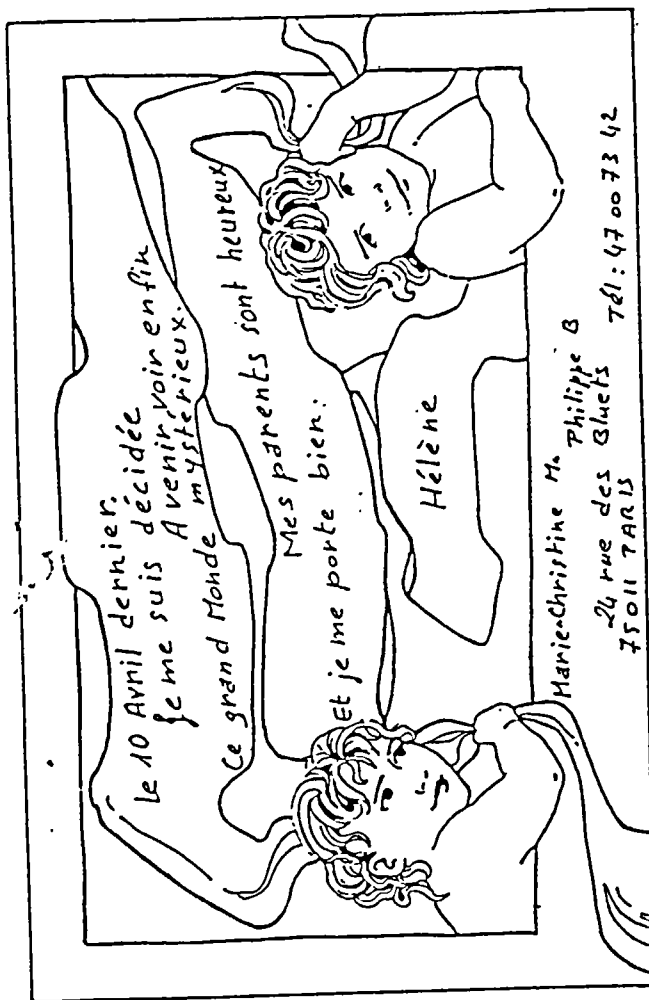 Le 10 Avril dernier.
Je me suis décidée
A venir voir enfin
Ce grand Monde mystérieux.
Mes parents sont heureux
Et je me porte bien.
Hélène
Marie-Christine M.
Philippe B
24 rue des Bluets
75011 PARIS
Tél : 47 00 73 42